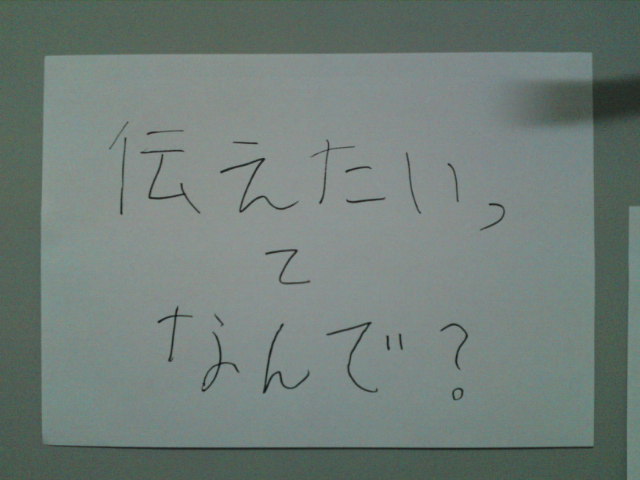 伝えたいっ
て
なんで?